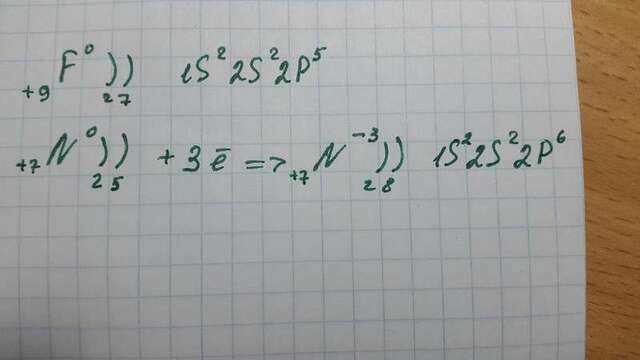 +9 F⁰ )) 2 7 1S² 2S² 2P⁵
+7 N⁰ )) 2 5 + 3 ē => +7 N⁻³ )) 2 8 1S² 2S² 2P⁶